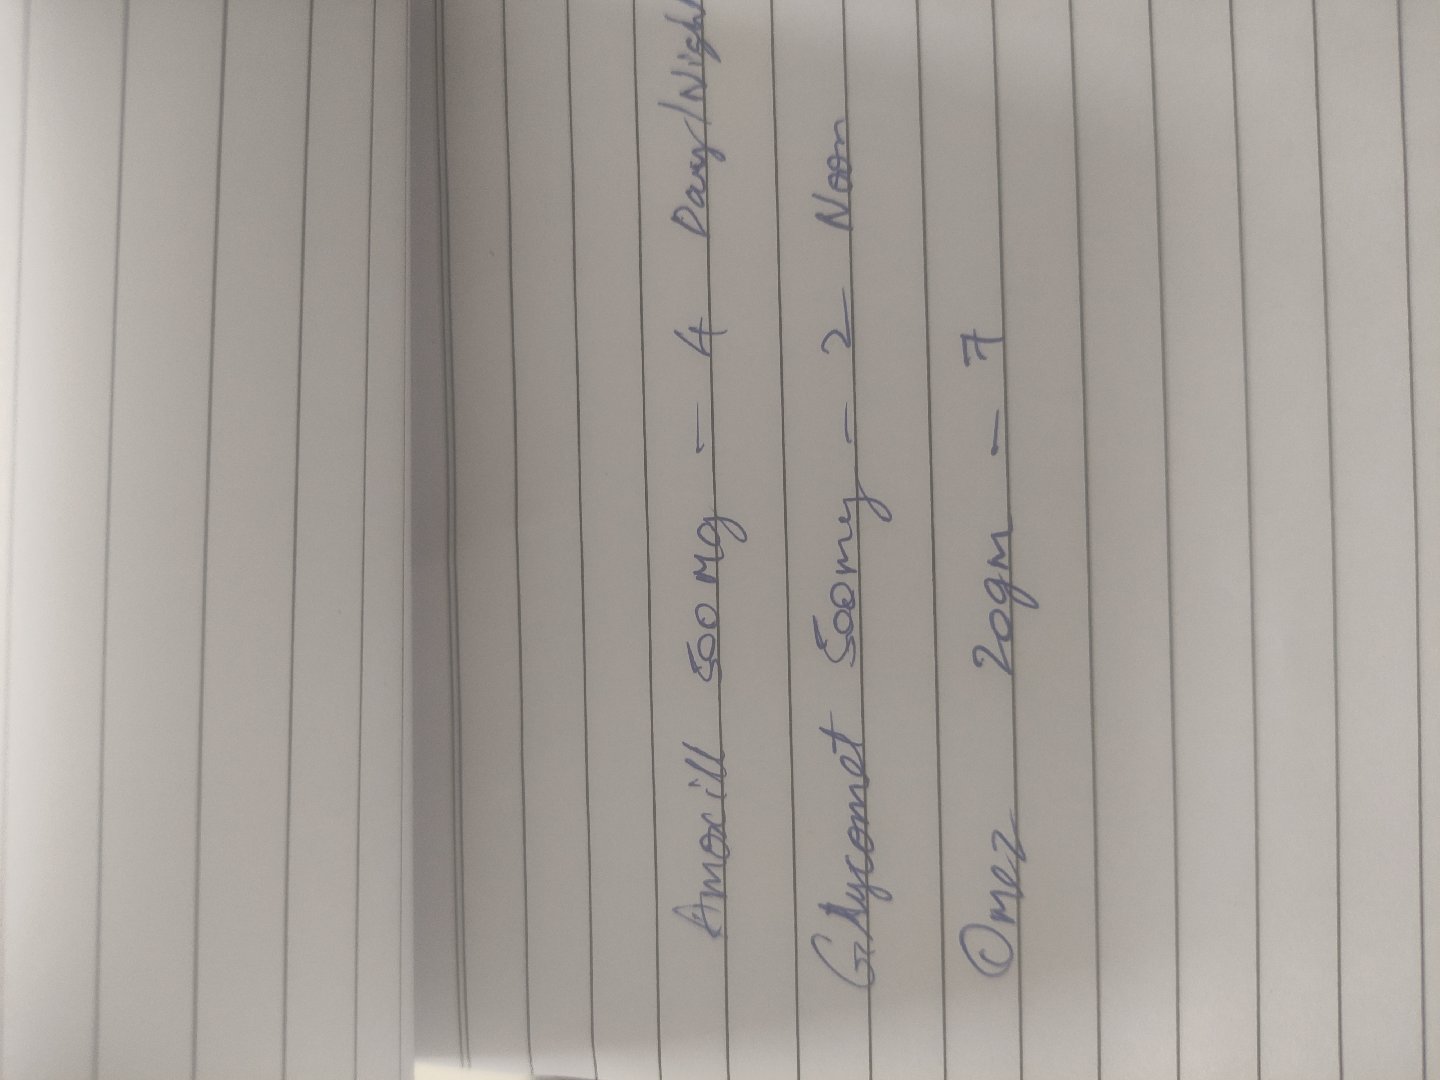 Amoxill 500 Mg - 4 Day/Night
Glycomet 500mg - 2 Noon
Omez 20gm - 7